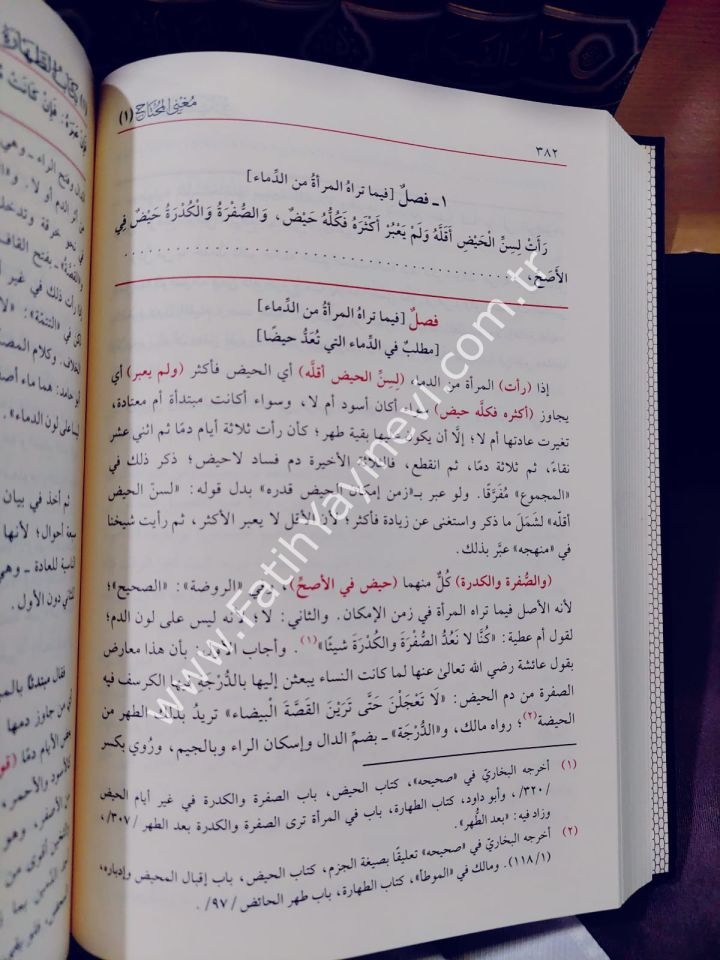 مغني المحتاج (١)
٣٨٢
١ ـ فصلٌ [فيما تراهُ المرأةُ من الدماء]
رَأَتْ لِسِنِّ الْحَيْضِ أَقَلَّهُ وَلَمْ يَعْبُرْ أَكْثَرَهُ فَكُلُّهُ حَيْضٌ، وَالصُّفْرَةُ وَالْكُدْرَةُ حَيْضٌ فِي
الأَصَحِّ،
فصلٌ [فيما تراهُ المرأةُ من الدِّماء]
[مطلبٌ في الدِّماء التي تُعَدُّ حيضًا]
إذا (رأت) المرأة من الدماء (لِسِنِّ الحيض أقلَّه) أي الحيض فأكثر (ولم يعبر) أي
يجاوز (أكثره فكلَّه حيض) سواء أكان أسود أم لا، وسواء أكانت مبتدأة أم معتادة،
تغيرت عادتها أم لا؛ إلَّا أن يكون عليها بقية طهر؛ كأن رأت ثلاثة أيام دمًا ثم اثني عشر
نقاءً، ثم ثلاثة دمًا، ثم انقطع، فالثلاثة الأخيرة دم فساد لاحيض؛ ذكر ذلك في
«المجموع» مُفَرَّقًا. ولو عبر بـ«زمن إمكان الحيض قدره» بدل قوله: «لسنّ الحيض
أقلّه» لشَمَلَ ما ذكر واستغنى عن زيادة فأكثر؛ لأن الأقل لا يعبر الأكثر، ثم رأيت شيخنا
في «منهجه» عبَّر بذلك.
(والصُّفرة والكدرة) كُلٌّ منهما (حيض في الأصحِّ)، وفي «الروضة»: «الصحيح»؛
لأنه الأصل فيما تراه المرأة في زمن الإمكان. والثاني: لا؛ لأنه ليس على لون الدم؛
لقول أم عطية: «كُنَّا لا نَعُدُّ الصُّفْرَةَ والكُدْرَةَ شيئًا»(١). وأجاب الأول: بأن هذا معارض
بقول عائشة رضي الله تعالىٰ عنها لما كانت النساء يبعثن إليها بالدُّرْجَة فيها الكرسف فيه
الصفرة من دم الحيض: «لَا تَعْجَلْنَ حَتَّى تَرَيْنَ القَصَّةَ الْبيضاء» تريدُ بذلك الطهر من
الحيضة(٢)؛ رواه مالك، و«الدُّرْجَة» ـ بضمِّ الدال وإسكان الراء وبالجيم، ورُوي بكسر
(١) أخرجه البخاريّ في «صحيحه»، كتاب الحيض، باب الصفرة والكدرة في غير أيام الحيض
/٣٢٠/، وأبو داود، كتاب الطهارة، باب في المرأة ترى الصفرة والكدرة بعد الطهر /٣٠٧/،
وزاد فيه: «بعد الطُّهر».
(٢) أخرجه البخاريّ في «صحيحه» تعليقًا بصيغة الجزم، كتاب الحيض، باب إقبال المحيض وإدباره،
(١/١١٨). ومالك في «الموطأ»، كتاب الطهارة، باب طهر الحائض /٩٧/.
www.FatihYayinevi.com.tr